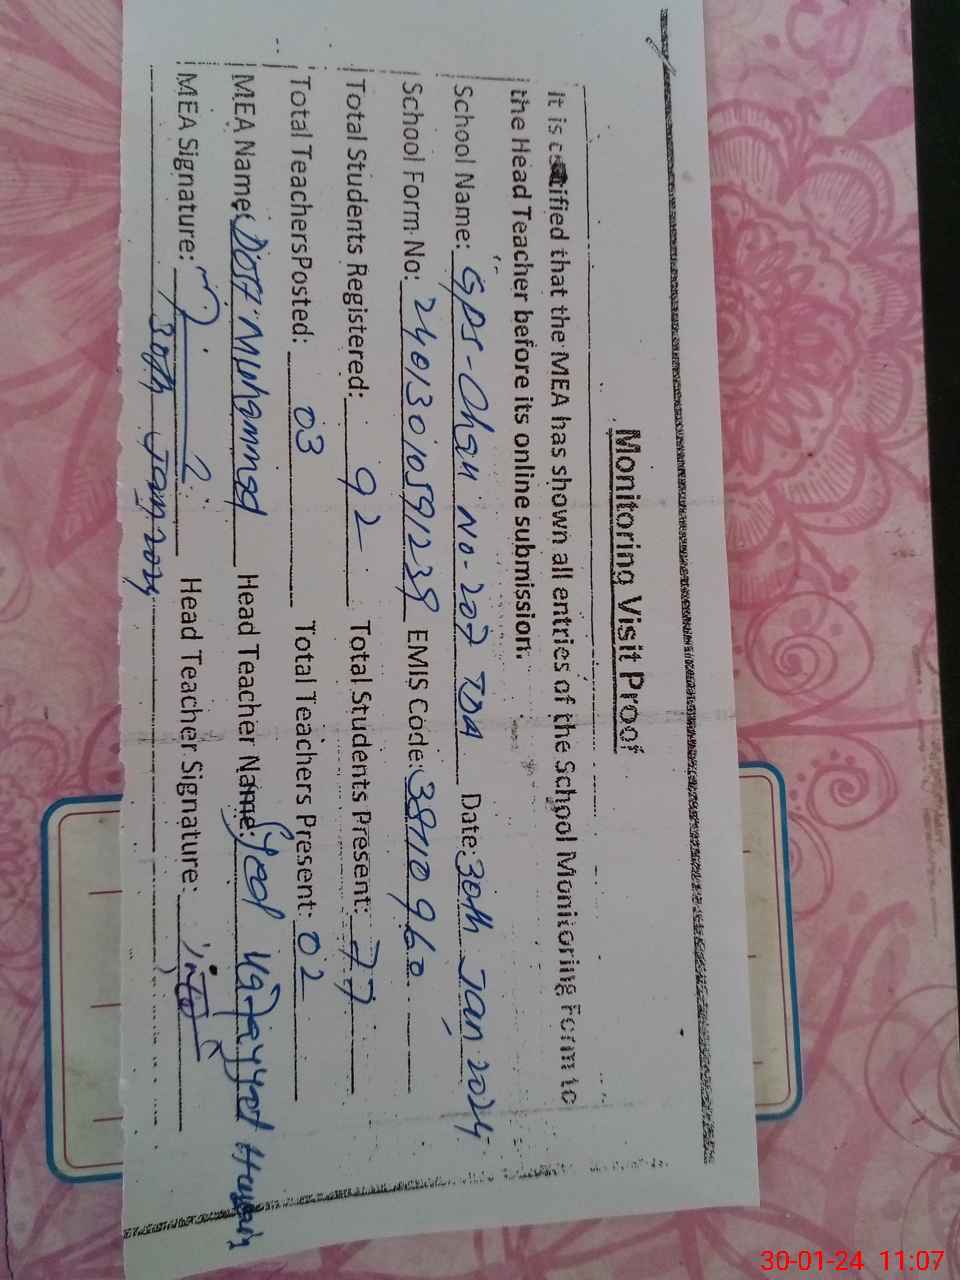 Monitoring Visit Proof
It is certified that the MEA has shown all entries of the School Monitoring Form to
the Head Teacher before its online submission.
School Name: GPS-Chak No-207 TDA Date: 30th Jan 2024
School Form No: 24013010591238 EMIS Code: 38110960
Total Students Registered: 92 Total Students Present: 77
Total TeachersPosted: 03 Total Teachers Present: 02
MEA Name: Dost Mohammad Head Teacher Name: Syed Hussain
MEA Signature: Head Teacher Signature:
30th Jan 2024
30-01-24 11:07